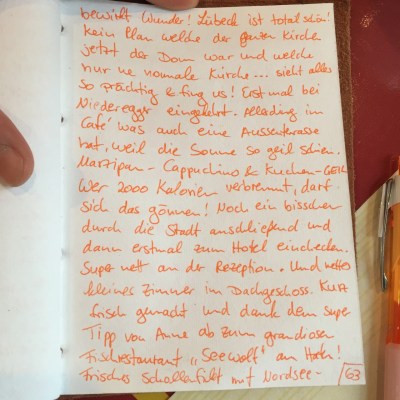 bewirkt Wunder! Lübeck ist total schön!
kein Plan welche der ganzen Kirchen
jetzt der Dom war und welche
nur ne normale Kirche... sieht alles
so prächtig aus! Erstmal bei
Niederegger eingekehrt. Allerdings im
Café was auch eine Aussenterrasse
hat, weil die Sonne so geil schien.
Marzipan-Cappuchino & Kuchen-GEIL
Wer 2000 Kalorien verbrennt, darf
sich das gönnen! Noch ein bisschen
durch die Stadt anschließend und
dann erstmal zum Hotel einchecken.
Super nett an der Rezeption. Und nettes
kleines Zimmer im Dachgeschoss. Kurz
frisch gemacht und dank dem super
Tipp von Anne ab zum grandiosen
Fischrestaurant „Seewolf" am Hafen!
Frisches Schollenfilet mit Nordsee-
/63